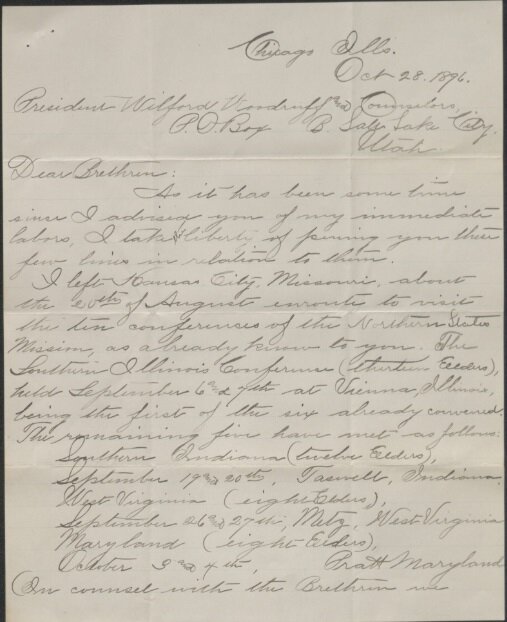 Chicago Ills.
Oct 28. 1896.
President Wilford Woodruff and Counselors,
P. O Box B. Salt Lake City,
Utah.
Dear Brethren:
As it has been some time
since I advised you of my immediate
labors, I take the liberty of penning you these
few lines in relation to them.
I left Kansas City, Missouri, about
the 20th of August enroute to visit
the ten conferences of the Northern States
Mission, as already know to you. The
Southern Illinois Conference (thirteen Elders),
held September 6 and 7th at Vienna, Illinois,
being the first of the six already convened.
The remaining five have met as follows:
Southern Indiana (twelve Elders),
September 19 and 20th, Taswell, Indiana.
West Virginia (eight Elders),
September 26 and 27th, Metz, West Virginia
Maryland (eight Elders),
October 3 and 4th, Pratt Maryland
(On counsel with the Brethren we